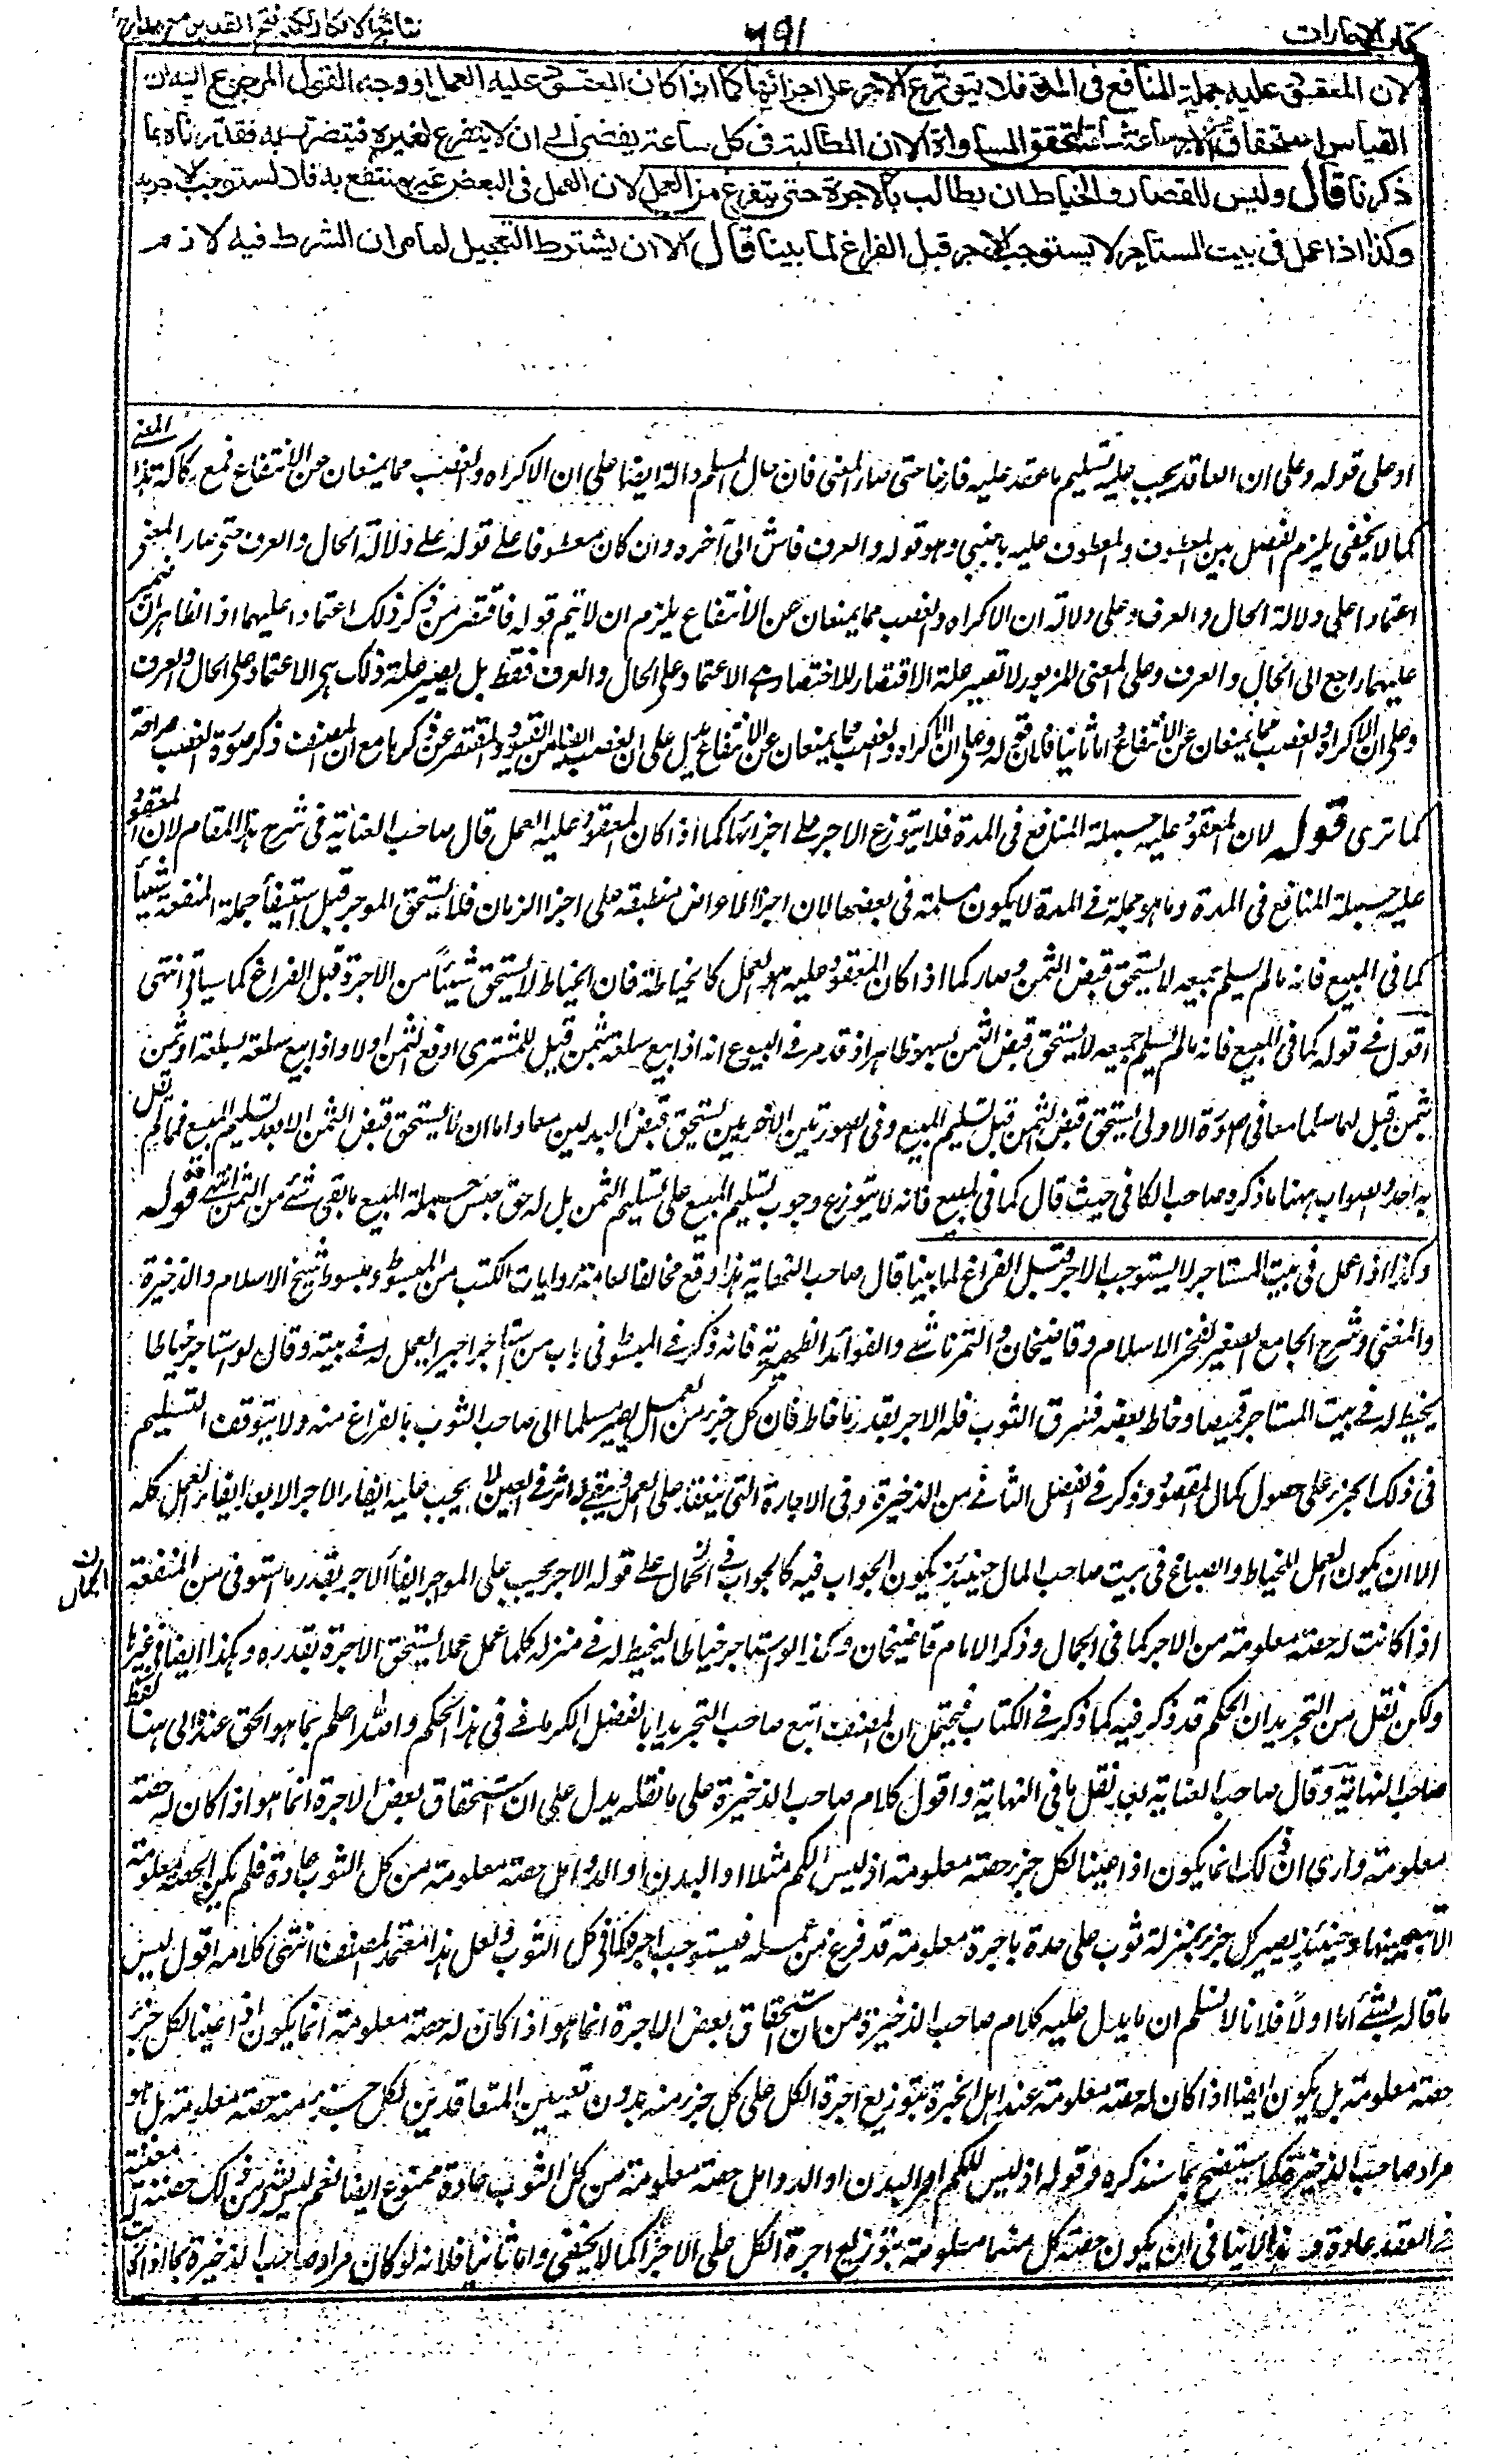 كتاب الاجارات
٦٩١
نتائج الافكار تكملة فتح القدير مع هداية ج
لان المعقود عليه جملة المنافع فى المدة فلا يتوزع الاجر على اجزائها كما اذا كان المعقود عليه العمل ووجه القول المرجوع اليه ان
القياس استحقاق الاجر ساعة فساعة لتحقق المساواة الا ان المطالبة فى كل ساعة يفضى الى ان لا يتفرغ لغيره فيتضرر به فقدرناه بما
ذكرنا قال وليس للقصار والخياط ان يطالب بالاجرة حتى يتفرغ من العمل لان العمل فى البعض غير منتفع به فلا يستوجب الاجر به
وكذا اذا عمل فى بيت المستاجر لا يستوجب الاجر قبل الفراغ لما بينا قال الا ان يشترط التعجيل لما مر ان الشرط فيه لازم
او على قوله وعلى ان العاقد يجب عليه تسليم ما عقد عليه فارغا حتى صار المعنى فان حال المسلم دالة ايضا على ان الاكراه والغصب مما يمنعان عن الانتفاع فمع ركاكة هذا المعنى
كما لا يخفى يلزم الفصل بين المعطوف والمعطوف عليه باجنبى وهو قوله والعرف فاش الى آخره وان كان معطوفا على قوله على دلالة الحال والعرف حتى صار المعنى
اعتمادا على دلالة الحال والعرف وعلى دلالة ان الاكراه والغصب مما يمنعان عن الانتفاع يلزم ان لا يتم قوله فاقتصر من ذكر ذلك اعتمادا عليهما اذ الظاهر ان ضمير
عليهما راجع الى الحال والعرف وعلى المعنى المزبور لا تصير علة الاقتصار للاختصار هى الاعتماد على الحال والعرف فقط بل يصير علة ذلك هى الاعتماد على الحال والعرف
وعلى ان الاكراه والغصب مما يمنعان عن الانتفاع واما ثانيا فلان قوله وعلى ان الاكراه والغصب مما يمنعان عن الانتفاع يدل على ان الغصب ايضا من القيود المقتصر عن ذكرها مع ان المصنف ذكر صورة الغصب صراحة
كما ترى قوله لان المعقود عليه جملة المنافع فى المدة فلا يتوزع الاجر على اجزائها كما اذا كان المعقود عليه العمل قال صاحب العناية فى شرح هذا المقام لان المعقود
عليه جملة المنافع فى المدة وما هو جملة فى المدة لا يكون مسلمة فى بعضها لان اجزاء الاعواض منطبقة على اجزاء الزمان فلا يستحق الموجر قبل استيفاء جملة المنفعة شيئا
كما فى المبيع فانه ما لم يسلم جميعه لا يستحق قبض الثمن وصار كما اذا كان المعقود عليه هو العمل كالخياطة فان الخياط لا يستحق شيئا من الاجرة قبل الفراغ كما سياتى انتهى
اقول فى قوله كما فى المبيع فانه ما لم يسلم جميعه لا يستحق قبض الثمن سهو ظاهر اذ قد مر فى البيوع انه اذا بيع سلعة بثمن قيل للمشترى ادفع الثمن اولا واذا بيع سلعة بسلعة او ثمن
بثمن قيل لهما سلما معا فى الصورة الاولى يستحق قبض الثمن قبل تسليم المبيع وفى الصورتين الاخريين يستحق قبض البدلين معا واما ان لا يستحق قبض الثمن الا بعد تسليم المبيع فمما لم يقل
به احد والصواب ههنا ما ذكره صاحب الكافى حيث قال كما فى المبيع فانه لا يتوزع وجوب تسليم المبيع على تسليم الثمن بل له حق حبس جملة المبيع ما بقى شئ من الثمن انتهى قوله
وكذا اذا عمل فى بيت المستاجر لا يستوجب الاجر قبل الفراغ لما بينا قال صاحب النهاية هذا وقع مخالفا لعامة روايات الكتب من المبسوط ومبسوط شيخ الاسلام والذخيرة
والمغنى وشرح الجامع الصغير لفخر الاسلام وقاضيخان والتمرتاشى والفوائد الظهيرية فانه ذكر فى المبسوط فى باب من استاجر اجيرا يعمل له فى بيته وقال لو استاجر خياطا
يخيط له فى بيت المستاجر قميصا وخاط بعضه فسرق الثوب فله الاجر بقدر ما خاط فان كل جزء من العمل يصير مسلما الى صاحب الثوب بالفراغ منه ولا يتوقف التسليم
فى ذلك الجزء على حصول كمال المقصود وذكر فى الفصل الثانى من الذخيرة وفى الاجارة التى ينعقد على العمل ويبقى له اثر فى العين لا يجب عليه ايفاء الاجر الا بعد ايفاء العمل كله
الا ان يكون العمل للخياط والصباغ فى بيت صاحب المال حينئذ يكون الجواب فيه كالجواب فى الحمال على قوله الاخر يجب على الموجر ايفاء الاجر بقدر ما استوفى من المنفعة
اذا كانت له حصة معلومة من الاجر كما فى الجمال وذكر الامام قاضيخان وكذا لو استاجر خياطا ليخيط له فى منزله كلما عمل عملا يستحق الاجرة بقدره وهكذا ايضا فى غيرها
ولكن نقل من التجريد ان الحكم قد ذكر فيه كما ذكر فى الكتاب فيحتمل ان المصنف اتبع صاحب التجريد ابا الفضل الكرمانى فى هذا الحكم والله اعلم بما هو الحق عنده الى هنا لفظ
صاحب النهاية وقال صاحب العناية بعد نقل ما فى النهاية واقول كلام صاحب الذخيرة على ما نقله يدل على ان استحقاق بعض الاجرة انما هو اذا كان له حصة
معلومة وارى ان ذلك انما يكون اذا عينا لكل جزء حصة معلومة اذ ليس للكم مثلا او البدن او الدوامل حصة معلومة من كل الثوب عادة فلم يكن الحصة معلومة
الا بتعيينهما وحينئذ يصير كل جزء بمنزلة ثوب على حدة باجرة معلومة قد فرغ من عمله فيستوجب اجره كما فى كل الثوب ولعل هذا معتمد المصنف انتهى كلامه اقول ليس
ما قاله بشئ اما اولا فلانا لا نسلم ان ما يدل عليه كلام صاحب الذخيرة من ان استحقاق بعض الاجرة انما هو اذا كان له حصة معلومة انما يكون اذا عينا لكل جزء
حصة معلومة بل يكون ايضا اذا كان له حصة معلومة عند اهل الخبرة بتوزيع اجرة الكل على كل جزء منه بدون تعيين المتعاقدين لكل جزء منه حصة معلومة بل هو
مراد صاحب الذخيرة كما ستتضح بما سنذكره وقوله اذ ليس للكم او البدن او الدوامل حصة معلومة من كل الثوب عادة ممنوع ايضا نعم ليس لشئ من ذلك حصة معينة
فى العقد عادة وهذا لا ينافى ان يكون حصة كل منها معلومة بتوزيع اجرة الكل على الاجزاء كما لا يخفى واما ثانيا فلانه لو كان مراد صاحب الذخيرة بما اذا كانت